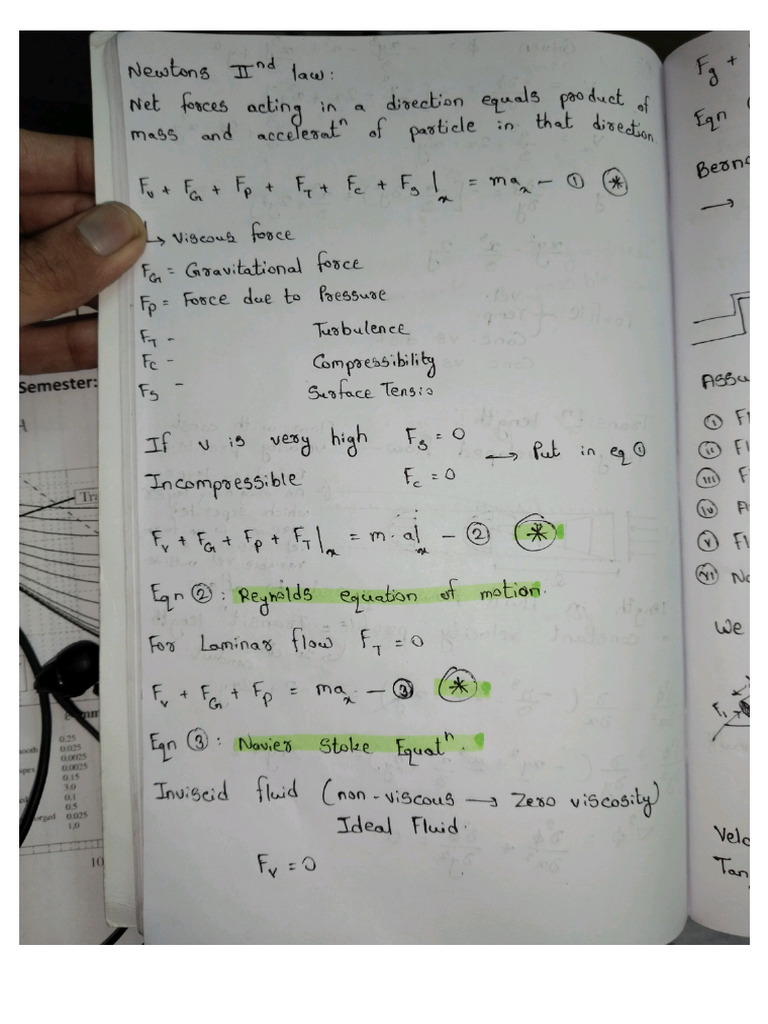 Newtons IInd law:
Net forces acting in a direction equals product of
mass and acceleratn of particle in that direction
Fv + FG + Fp + FT + Fc + Fs |x = max — ① *
↳ Viscous force
FG = Gravitational force
Fp = Force due to Pressure
FT - Turbulence
Fc - Compressibility
Fs - Surface Tensio
If v is very high Fs = 0 → Put in eq ①
Incompressible Fc = 0
Fv + FG + Fp + FT |x = m. a|x — ② *
Eqn ②: Reynolds equation of motion.
For Laminar flow FT = 0
Fv + FG + Fp = max — ③ *
Eqn ③: Navier Stoke Equatn.
Inviscid fluid (non-viscous → Zero viscosity)
Ideal Fluid.
Fv = 0
Semester:
Tra
mm
0.25
0.025
0.0025
0.0025
0.15
3.0
0.1
0.5
0.025
1.0
10
Fg +
Eqn
Berno
→
Assu
① Fl
ii Fl
iii F
iv A
v Fl
vi No
We
F1
Velo
Tan